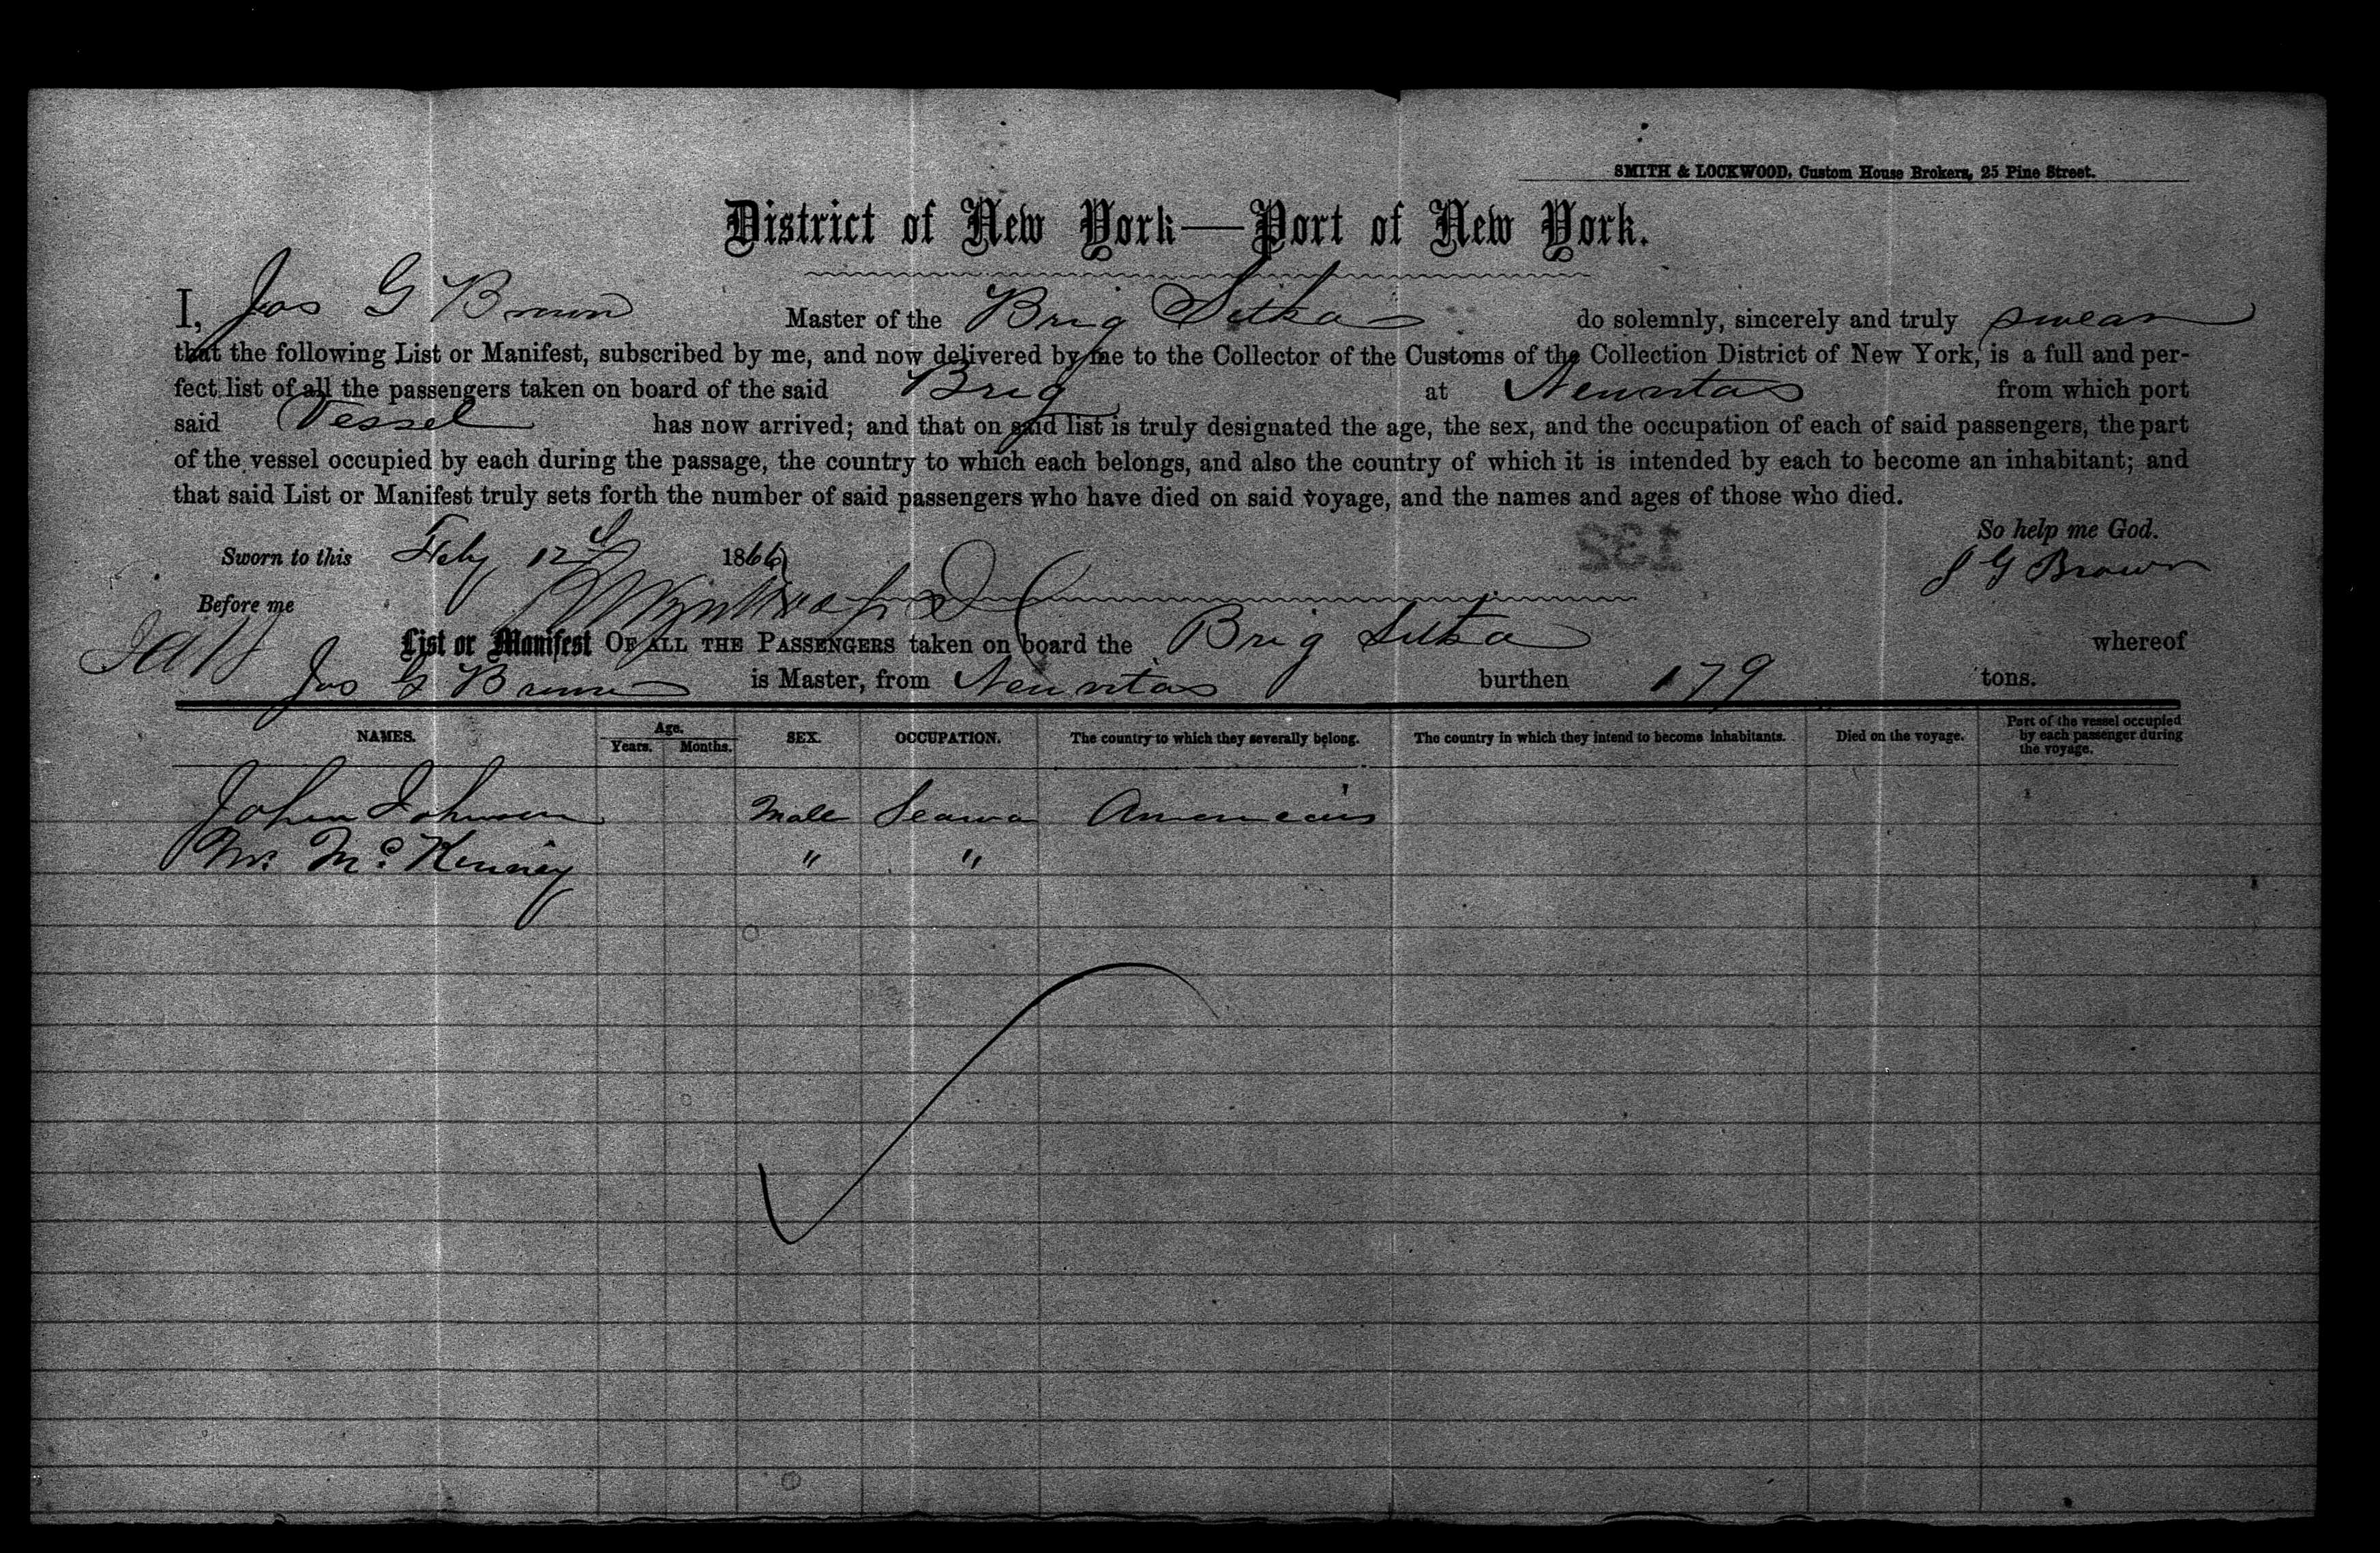 SMITH & LOCKWOOD, Custom House Brokers, 25 Pine Street.
District of New York—Port of New York.
I, Jas G Brown Master of the Brig Sitka do solemnly, sincerely and truly swear
that the following List or Manifest, subscribed by me, and now delivered by me to the Collector of the Customs of the Collection District of New York, is a full and per-
fect list of all the passengers taken on board of the said Brig at Neuvitas from which port
said Vessel has now arrived; and that on said list is truly designated the age, the sex, and the occupation of each of said passengers, the part
of the vessel occupied by each during the passage, the country to which each belongs, and also the country of which it is intended by each to become an inhabitant; and
that said List or Manifest truly sets forth the number of said passengers who have died on said voyage, and the names and ages of those who died.
So help me God.
Sworn to this Feby 12 1866
J G Brown
132
Before me
List or Manifest OF ALL THE PASSENGERS taken on board the Brig Sitka whereof
Jas G Brown is Master, from Neuvitas burthen 179 tons.
NAMES. Age. Years. Months. SEX. OCCUPATION. The country to which they severally belong. The country in which they intend to become inhabitants. Died on the voyage. Part of the vessel occupied by each passenger during the voyage.
John Johnson Male Seaman Americans
Mr. McKenney " "